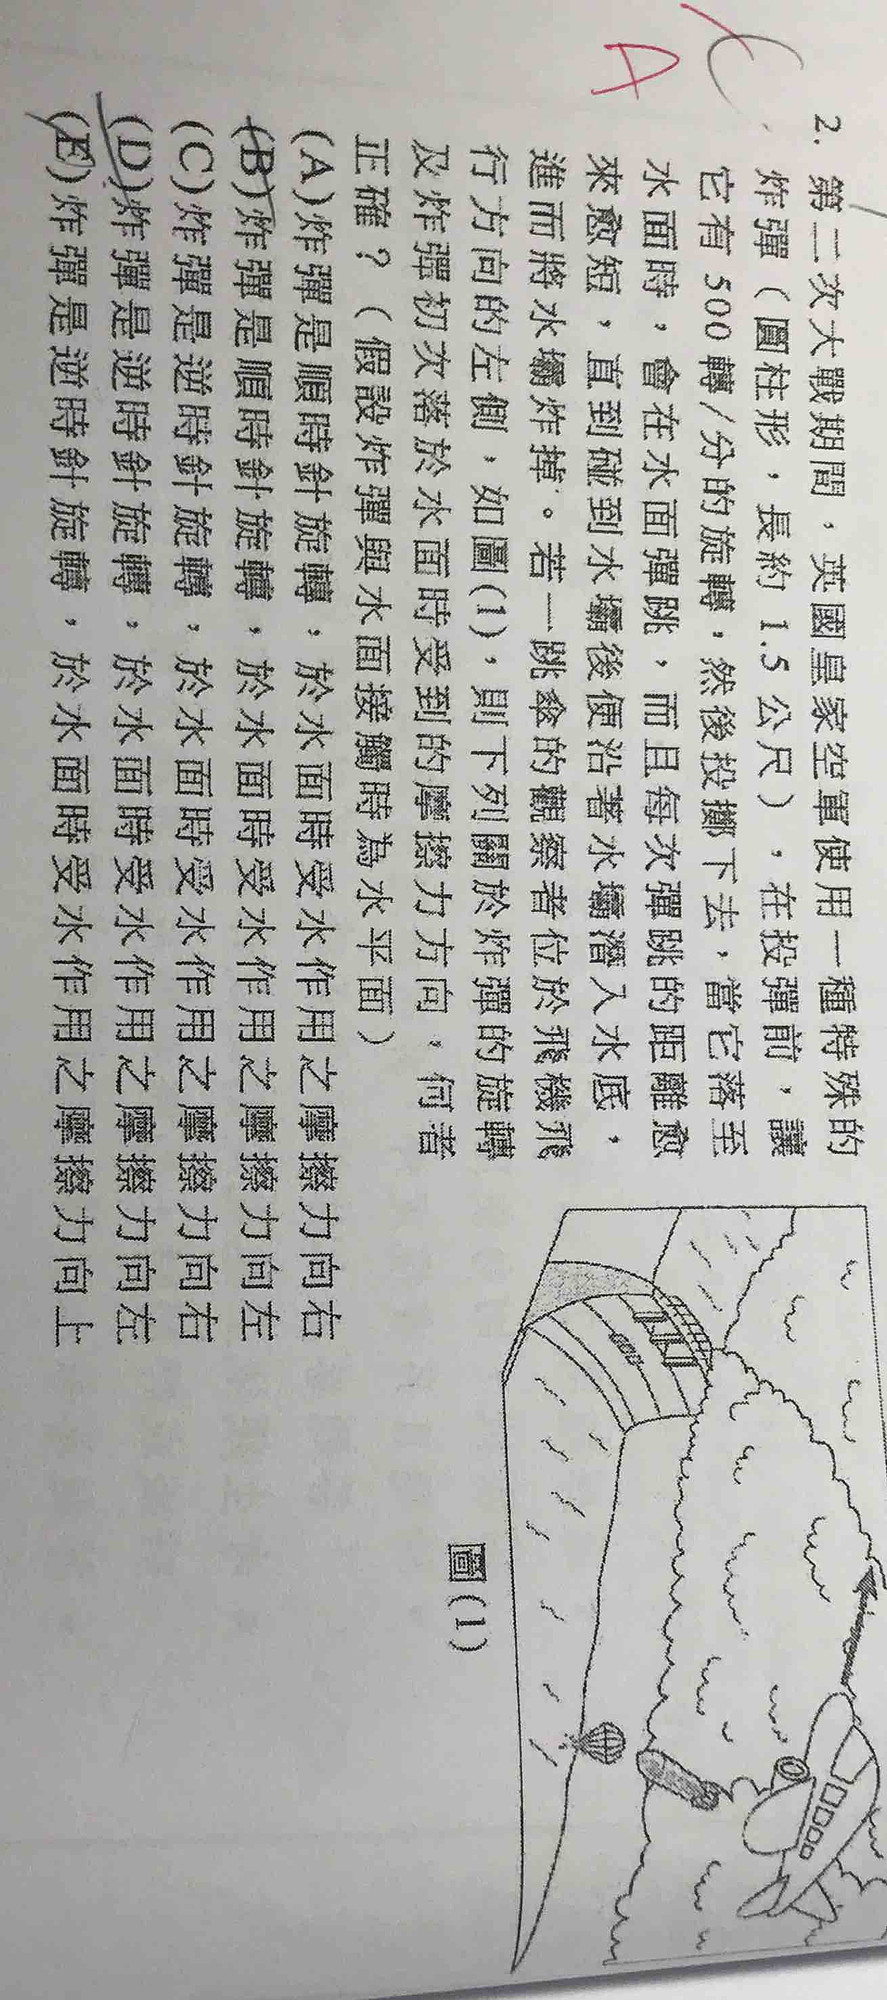 C
A
2. 第二次大戰期間，英國皇家空軍使用一種特殊的
炸彈（圓柱形，長約 1.5 公尺），在投彈前，讓
它有 500 轉/分的旋轉，然後投擲下去，當它落至
水面時，會在水面彈跳，而且每次彈跳的距離愈
來愈短，直到碰到水壩後便沿著水壩潛入水底，
進而將水壩炸掉。若一跳傘的觀察者位於飛機飛
行方向的左側，如圖(1)，則下列關於炸彈的旋轉
及炸彈初次落於水面時受到的摩擦力方向，何者
正確？（假設炸彈與水面接觸時為水平面）
(A)炸彈是順時針旋轉，於水面時受水作用之摩擦力向右
(B)炸彈是順時針旋轉，於水面時受水作用之摩擦力向左
(C)炸彈是逆時針旋轉，於水面時受水作用之摩擦力向右
(D)炸彈是逆時針旋轉，於水面時受水作用之摩擦力向左
(E)炸彈是逆時針旋轉，於水面時受水作用之摩擦力向上
圖(1)